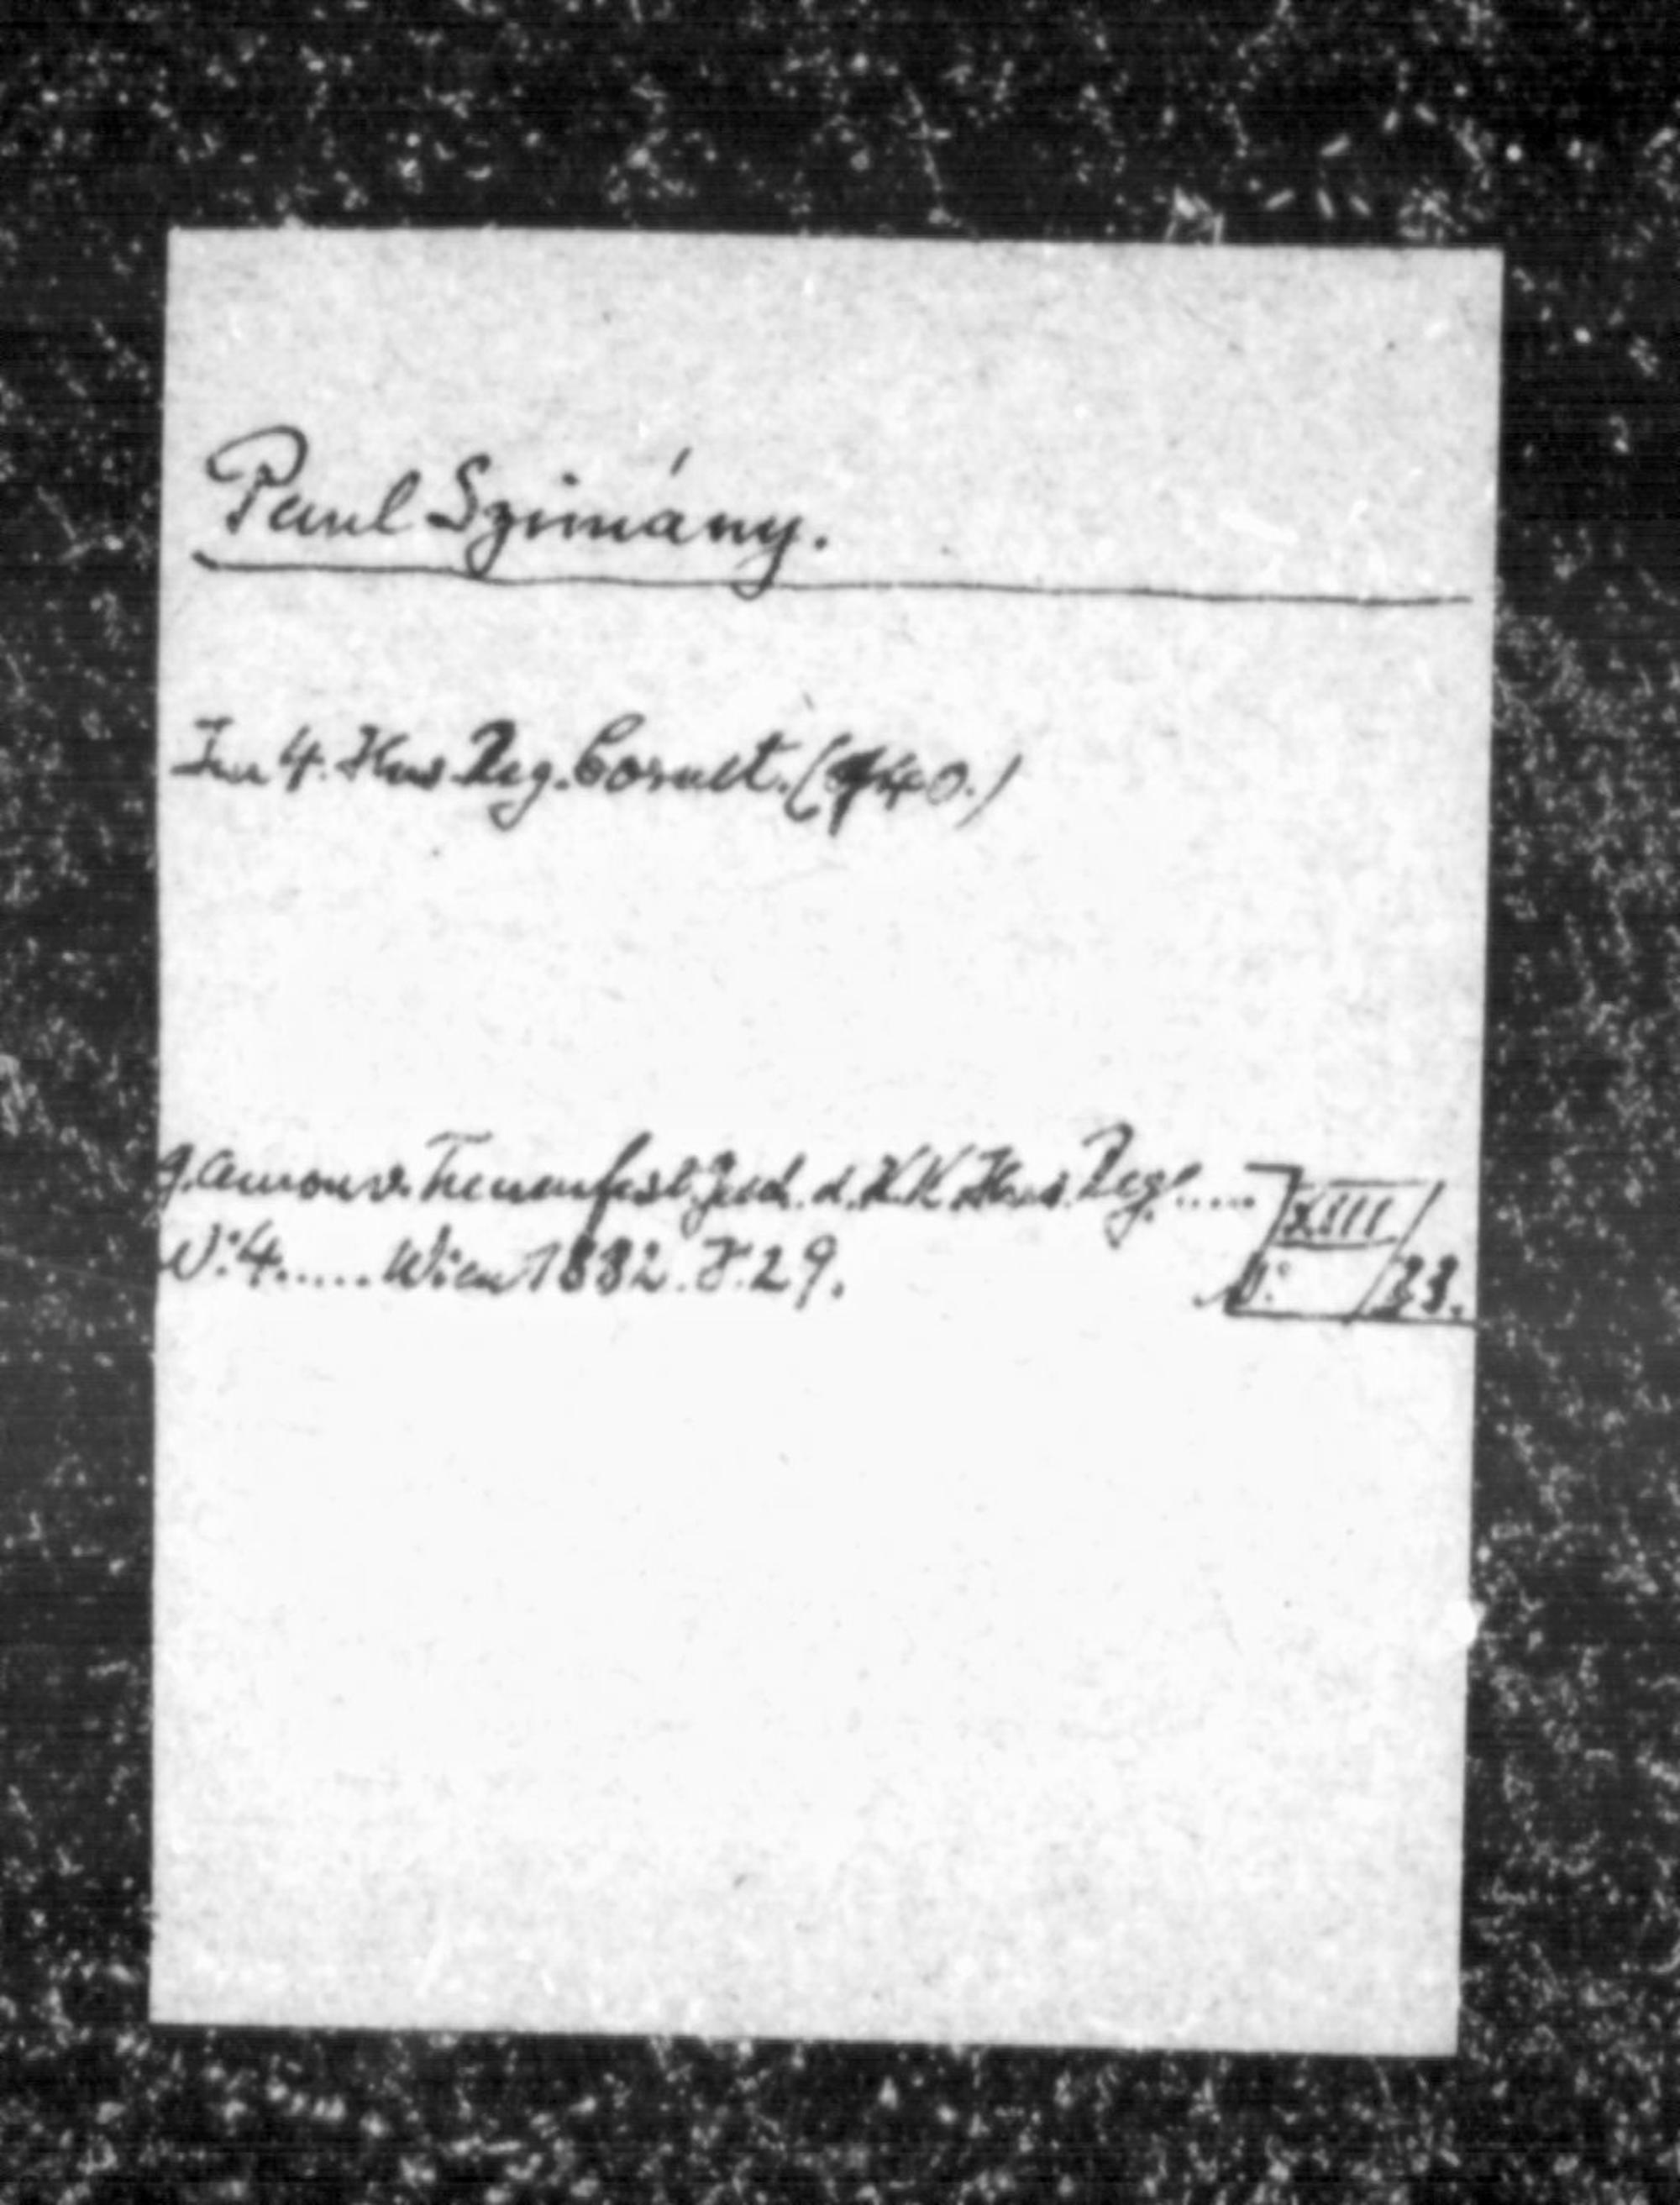 Paul Szimány.
Im 4. Hus. Reg. Cornet. (740.)
G. Amon v. Treuenfest. Gesch. d. K. K. Hus. Reg. ..... XIII
N: 4 ..... Wien 1882. S. 29. N: 23.